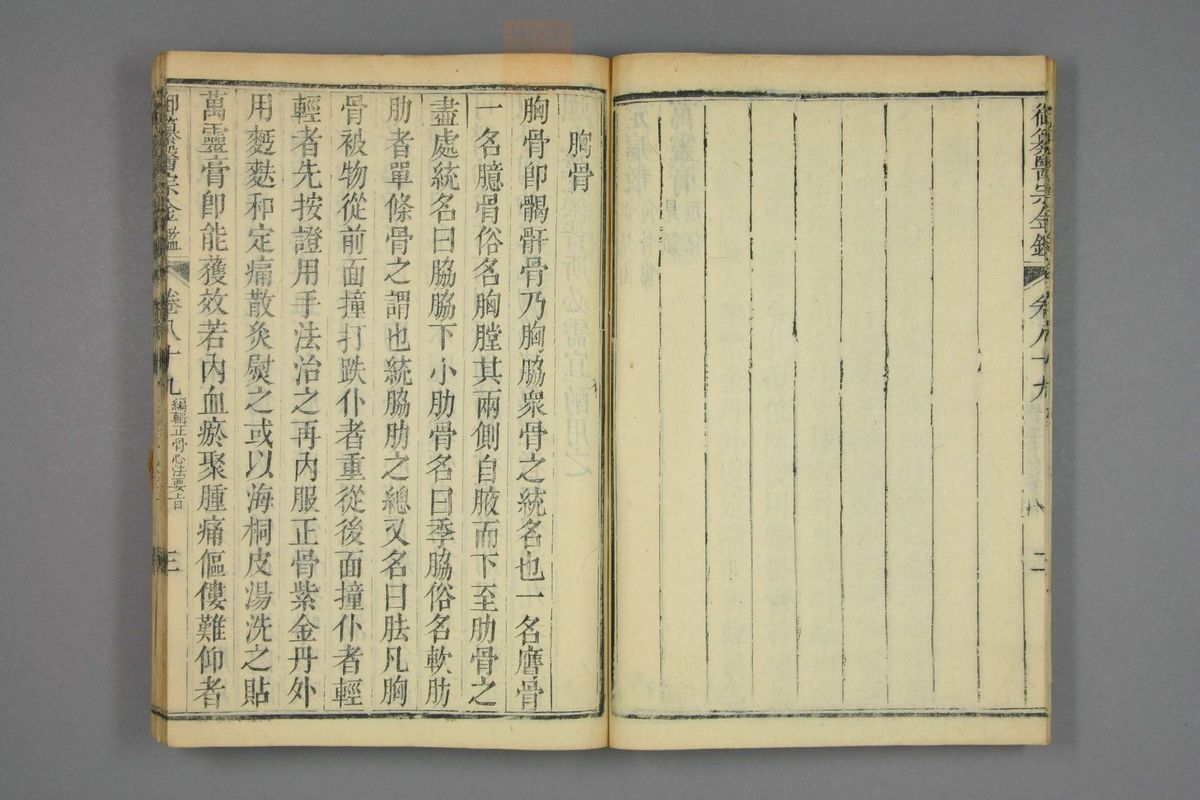 御纂醫宗金鑑 卷八十九
二
胸骨
胸骨卽𩩲骬骨乃胸脇衆骨之統名也一名膺骨
一名臆骨俗名胸膛其兩側自腋而下至肋骨之
盡處統名曰脇脇下小肋骨名曰季脇俗名軟肋
肋者單條骨之謂也統脇肋之總又名曰胠凡胸
骨被物從前面撞打跌仆者重從後面撞仆者輕
輕者先按證用手法治之再內服正骨紫金丹外
用麪麩和定痛散灸熨之或以海桐皮湯洗之貼
萬靈膏卽能獲效若內血瘀聚腫痛傴僂難仰者
御纂醫宗金鑑 卷八十九 編輯正骨心法要旨
三